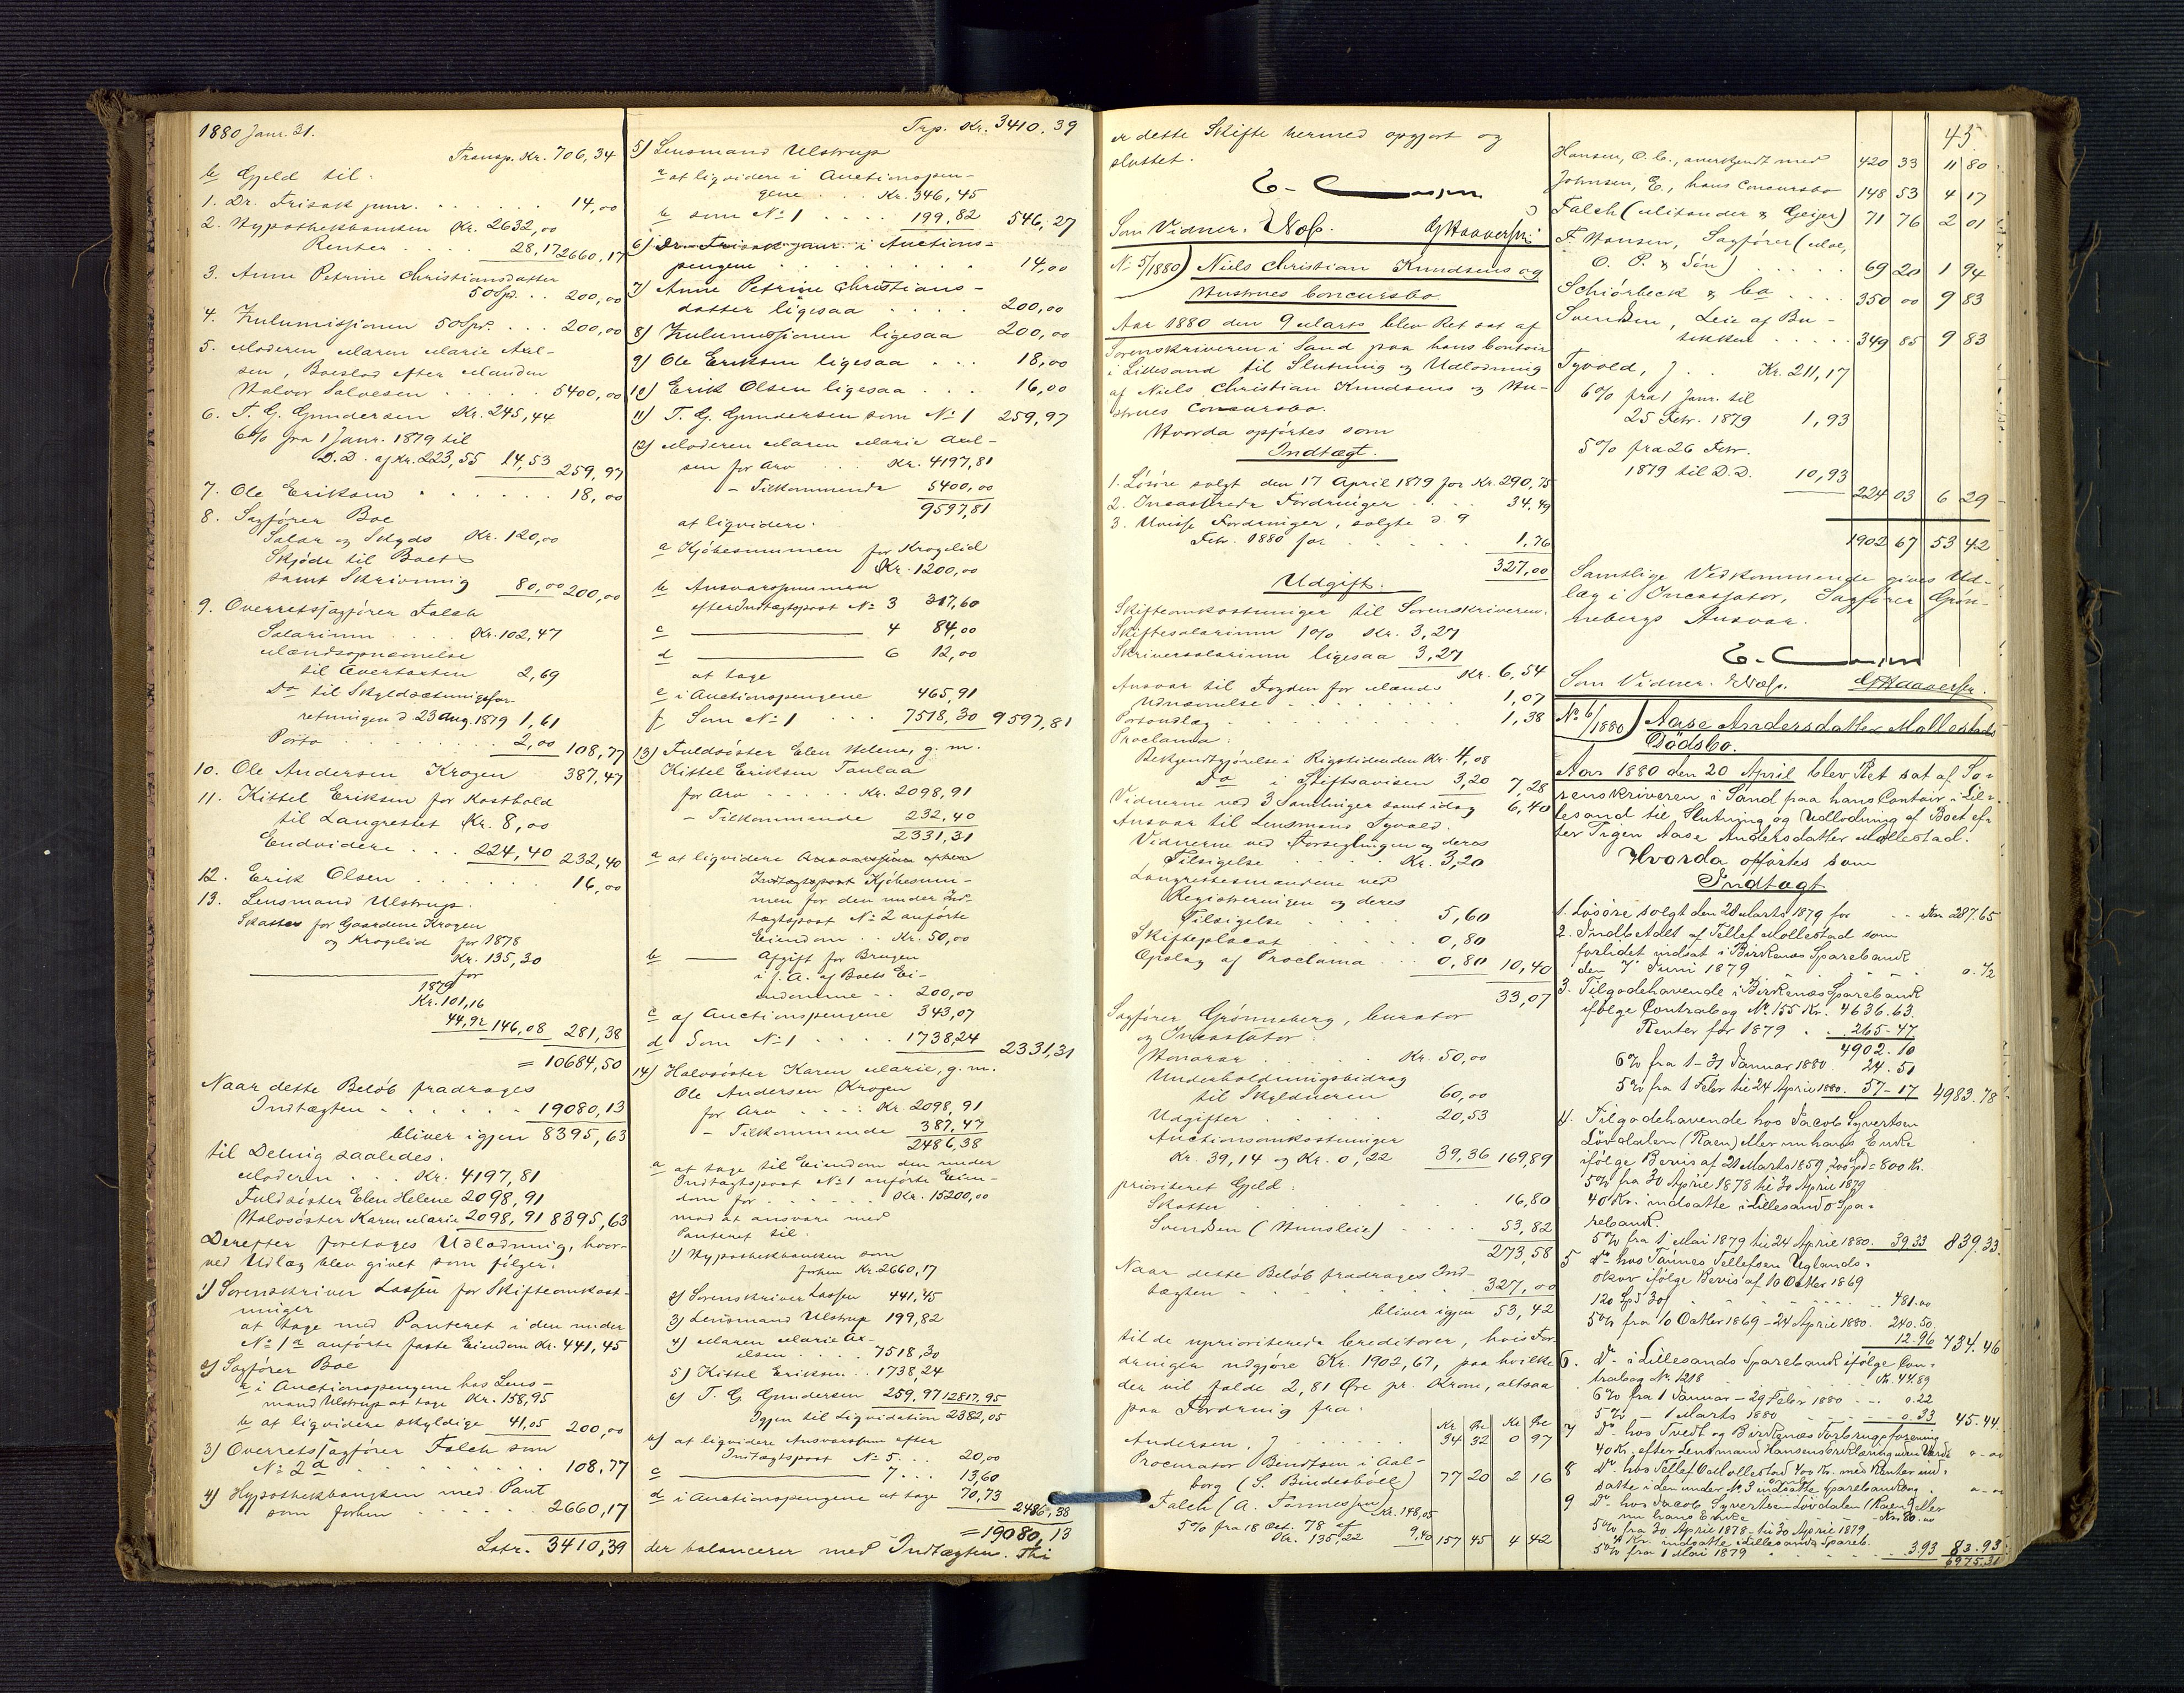 1880 Janr. 31.
Transp. Kr. 706,34
b Gjeld til:
1. Dr. Frisak junr. . . . 14,00
2. Hypothekbanken Kr. 2632,00
Renter . . 28,17 2660,17
3. Anne Petrine Christiansdatter
50 Sp. . . 200,00
4. Zulumissionen 50 Spr. . . . 200,00
5. Moderen Maren Marie Axel-
sen, Boeslod efter Manden
Halvor Salvesen . . . 5400,00
6. T. G. Gundersen Kr. 245,44
6% fra 1 Janr. 1879 til
D.D. af Kr. 223,55 14,53 259,97
7. Ole Eriksen . . . 18,00
8. Sagfører Boe
Salar og Skyds Kr. 120,00
Skjøde til Boet
samt Skrivning 80,00 200,00
9. Overretssagfører Falch
Salarium . . . Kr. 102,47
Mandsopnævnelse
til Overtaxten 2,69
Do til Skyldsætningsfor-
retningen d. 23 Aug. 1879 1,61
Porto . . . 2,00 108,77
10. Ole Andersen Krogen 387,47
11. Kittel Eriksen for Kosthold
til Langrettet Kr. 8,00
Endvidere . . . 224,40 232,40
12. Erik Olsen . . . 16,00
13. Lensmand Ulstrup.
Skatter for Gaardene Krogen
og Krogelid for 1878
Kr. 135,30
for
1879
Kr. 101,16
44,92 146,08 281,38
= 10684,50
Naar dette Beløb fradrages
Indtægten . . . 19080,13
bliver igjen 8395,63
til Deling saaledes:
Moderen . . . Kr. 4197,81
Fuldsøster Elen Helene 2098,91
Halvsøster Karen Marie 2098,91 8395,63
Derefter foretages Udlodning, hvor-
ved Udlæg blev givet som følger:
1) Sorenskriver Lassen for Skifteomkost-
ninger
at tage med Panteret i den under
No 1a anførte faste Eiendom Kr. 441,45
2) Sagfører Boe
a i Auctionspengene hos Lens-
mand Ulstrup at tage Kr. 158,95
b at liqvidere skyldige 41,05 200,00
3) Overretssagfører Falch som
No 2a . . . 108,77
4) Hypothekbanken med Pant
som forhen . . . 2660,17
Latr. 3410,39
Trp. Kr. 3410,39
5) Lensmand Ulstrup
a at liqvidere i Auctionspen-
gene . . . Kr. 346,45
b som No 1 . . . 199,82 546,27
6) Dr. Frisak junr. i Auctions-
pengene . . . 14,00
7) Anne Petrine Christians-
datter ligesaa . . . 200,00
8) Zulumissionen ligesaa 200,00
9) Ole Eriksen ligesaa . . . 18,00
10) Erik Olsen ligesaa . . . 16,00
11) T. G. Gundersen som No 1 259,97
12) Moderen Maren Marie Axel-
sen for Arv . . . Kr. 4197,81
– Tilkommende 5400,00
9597,81
at liqvidere:
a Kjøbesummen for Krogelid
Kr. 1200,00
b Ansvarssummen
efter Indtægtspost No 3 317,60
c ——— 4 84,00
d ——— 6 12,00
at tage
e i Auctionspengene 465,91
f Som No 1 . . . 7518,30 9597,81
13) Fuldsøster Elen Helene, g. m.
Kittel Eriksen Taulaa
for Arv . . . Kr. 2098,91
– Tilkommende 232,40
2331,31
a at liqvidere
Kjøbesum-
men for den under Ind-
tægtspost No 2 anførte
Eiendom . . Kr. 50,00
b —— Afgift for Brugen
i f. A. af Boets Ei-
endomme . . 200,00
c af Auctionspengene 343,07
d Som No 1 . . . 1738,24 2331,31
14) Halvsøster Karen Marie, g. m.
Ole Andersen Krogen
for Arv . . . Kr. 2098,91
– Tilkommende 387,47
2486,38
a at tage til Eiendom den under
Indtægtspost No 1 anførte Eien-
dom for . . . Kr. 15200,00
mod at ansvare med
Panteret til:
1) Hypothekbanken som
forhen Kr. 2660,17
2) Sorenskriver Lassen 441,45
3) Lensmand Ulstrup 199,82
4) Maren Marie Ax-
elsen . . . 7518,30
5) Kittel Eriksen . . 1738,24
6) T. G. Gundersen 259,97 12817,95
Igjen til Liqvidation 2382,05
b) at liqvidere Ansvarssum efter
Indtægtspost No 5 . . . 20,00
c ——— 7 . . . 13,60
d i Auctionspengene at tage 70,73
2486,38
= 19080,13
der balancerer med Indtægten. Thi
er dette Skifte hermed opgjort og
sluttet.
Som Vidner.
No 5/1880) Niels Christian Knudsens og
Hustrues Concursbo.
Aar 1880 den 9 Marts blev Ret sat af
Sorenskriveren i Sand paa hans Contoir
i Lillesand til Slutning og Udlodning
af Niels Christian Knudsens og Hu-
strues Concursbo.
Hvorda opførtes som
Indtægt.
1. Løsøre solgt den 17 April 1879 for Kr. 290,75
2. Incasserede Fordringer . . . 34,49
3. Uvisse Fordringer, solgte d. 9
Febr. 1880 for . . . 1,76
327,00
Udgift.
Skifteomkostninger til Sorenskriveren:
Skiftesalarium 1% Kr. 3,27
Skriversalarium ligesaa 3,27
Kr. 6,54
Ansvar til Fogden for Mands
Udnævnelse . . . 1,07
Portoudlæg . . . 1,38
Proclama:
Bekjendtgjørelse i Rigstidenden Kr. 4,08
Do i Stiftsavisen 3,20 7,28
Vidnerne ved 3 Samlinger samt idag 6,40
Ansvar til Lensmand Tyvold:
Vidnerne ved Forseglingen og deres
Tilsigelse . . . Kr. 3,20
Langrettesmændene ved
Registreringen og deres
Tilsigelse . . . 5,60
Skifteplacat . . . 0,80
Opslag af Proclama . . . 0,80 10,40
33,07
Sagfører Grønneberg, Curator
og Incassator:
Honorar . . . Kr. 50,00
Underholdningsbidrag
til Skyldneren 60,00
Udgifter . . . 20,53
Auctionsomkostninger
Kr. 39,14 og Kr. 0,22 39,36 169,89
prioriteret Gjeld:
Skatter . . . 16,80
Svendsen (Huusleie) . . . 53,82
273,58
Naar dette Beløb fradrages Ind-
tægten . . . 327,00
bliver igjen 53,42
til de uprioriterede Creditorer, hvis For-
dringer udgjøre Kr. 1902,67, paa hvilke
der vil falde 2,81 Øre pr. Krone, altsaa
paa Fordring fra:
Kr Øre Kr Øre
Andersen, J . . . 34 32 0 97
Procurator Bendtsen i Aal-
borg (S. Bindesbøll) 77 20 2 16
Falch (A. Tønnessen) Kr. 148,05
5% fra 18 Oct. 78 af
Kr. 135,22 9,40 157 45 4 42
45.
Hansen, O. C., anerkjendt med 420 33 11 80
Johnsen, E., hans Concursbo 148 53 4 17
Falch (Alexander & Geijer) 71 76 2 01
F. Hansen, Sagfører (Moe,
O. P. & Søn) . . . 69 20 1 94
Schiørbeck & Co . . . 350 00 9 83
Svendsen, Leie af Bu-
tikken . . . 349 85 9 83
Tyvold, J . . Kr. 211,17
6% fra 1 Janr. til
25 Febr. 1879 1,93
5% fra 26 Febr.
1879 til D.D. 10,93
224 03 6 29
1902 67 53 42
Samtlige Vedkommende gives Ud-
læg i Incassator, Sagfører Grøn-
nebergs Ansvar.
Som Vidner.
No 6/1880) Aase Andersdatter Mollestads
Dødsbo.
Aar 1880 den 20 April blev Ret sat af So-
renskriveren i Sand paa hans Contoir i Lil-
lesand til Slutning og Udlodning af Boet ef-
ter Pigen Aase Andersdatter Mollestad.
Hvorda opførtes som
Indtægt
1. Løsøre solgt den 20 Marts 1879 for . . Kr 287.65
2. Indbetalt af Tellef Mollestad som
forlidet indsat i Birkenes Sparebank
den 7 Juni 1879 . . . 0.12
3. Tilgodehavende i Birkenes Sparebank
ifølge Contrabog No. 155 Kr. 4636.63.
Renter for 1879 . . . 265-47
4902.10
6% fra 1-31 Januar 1880 24.51
5% fra 1 Febr til 24 April 1880. 57-17 4983.78
4. Tilgodehavende hos Jacob Syvertsen
Løvdalen (Raen) eller nu hans Enke
ifølge Bevis af 20 Marts 1859, 200 Spd = 800 Kr.
5% fra 30 April 1878 til 30 April 1879
40 Kr. indsatte i Lillesands Spa-
rebank.
5% fra 1 Mai 1879 til 24 April 1880. 39.33 839.33.
5 Do hos Tønnes Tellefsen Uglands-
ifølge Bevis af 10 October 1869
120 Sp 30 . . . 481.00
5% fra 10 October 1869 – 24 April 1880. 240.50.
12.96 734.46
6. Do i Lillesands Sparebank ifølge Con-
trabog No. 1218 . . . Kr. 44.89
6% fra 1 Januar – 29 Febr 1880 . . . 0.22
5% – 1 Marts 1880 . . . 0.33 45.44
7 Do hos Tvedt og Birkenes Forbrugsforening
40 Kr. efter Lensmand Hansens Erklæring uden Værdi
8 Do hos Tellef O Mollestad 400 Kr. med Renter ind-
satte i den under No 3 indsatte Sparebankbog
9 Do hos Jacob Syvertsen Løvdalen (Raen) eller
nu hans Enke . . . Kr. 80.00
5% fra 30 April 1878 – til 30 April 1879,
4 Kr. indsatte i Lillesands Spareb.
5% fra 1 Mai 1879 . . . 3.93 83.93
6975.31